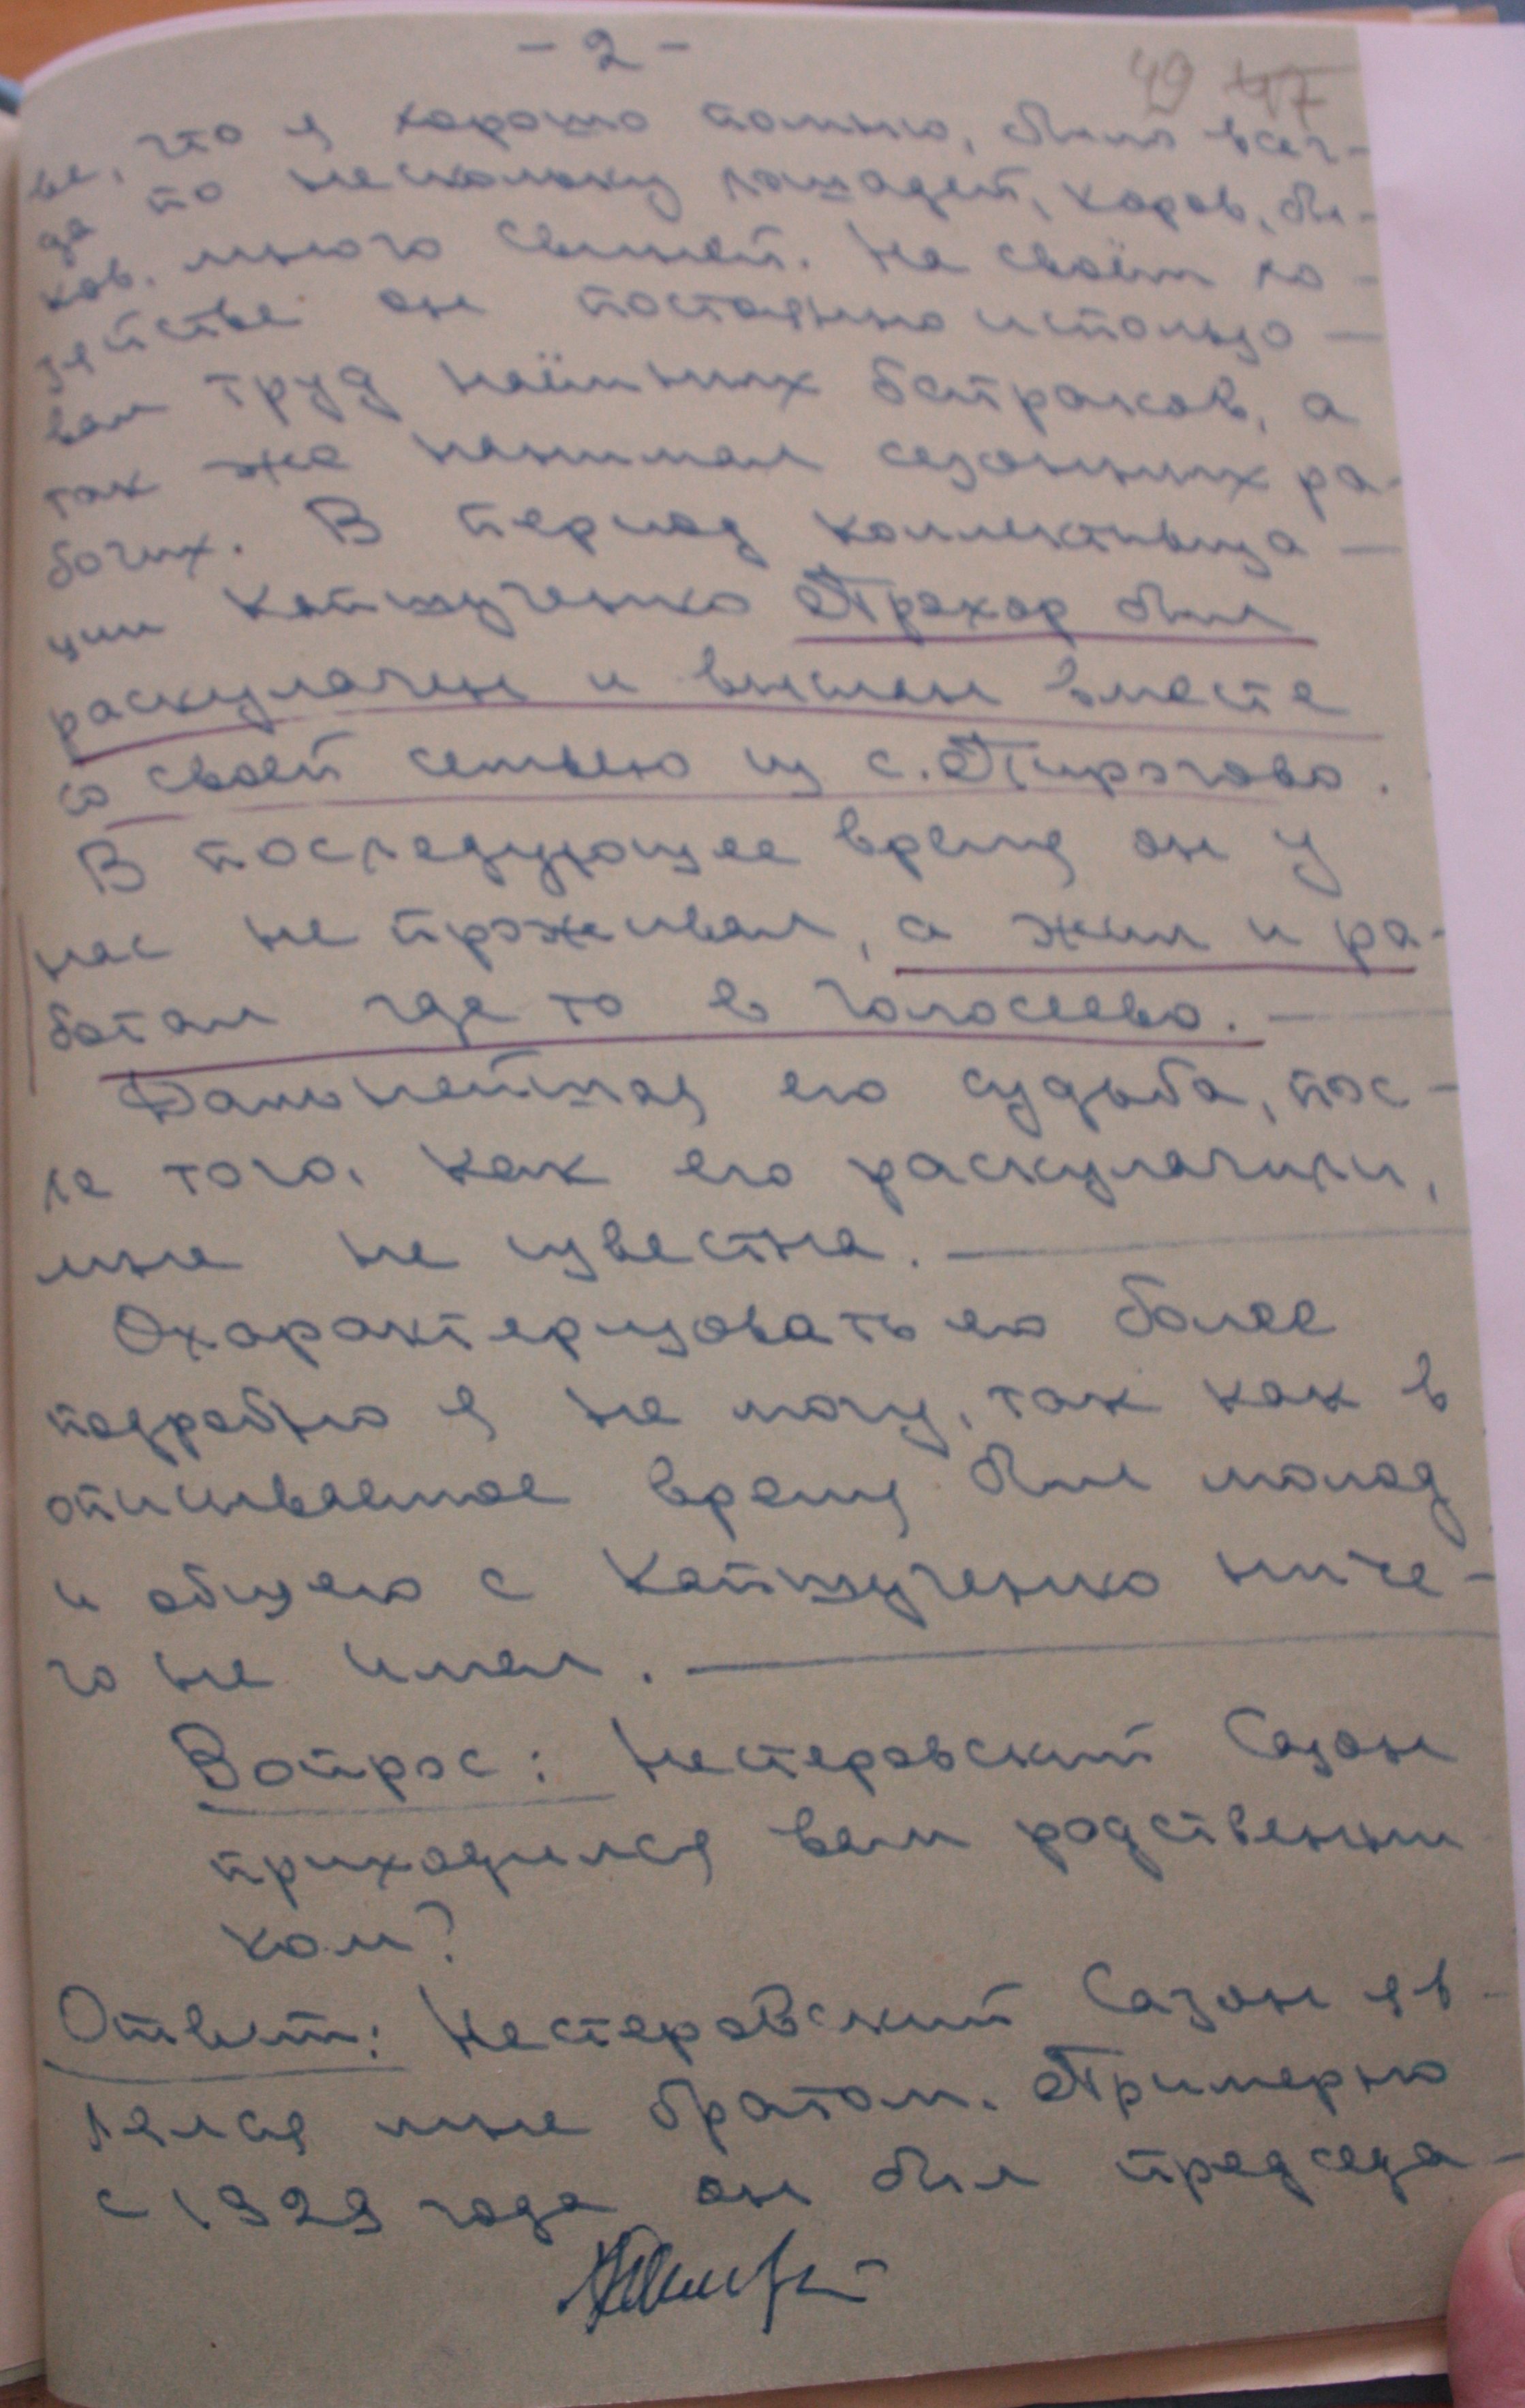 - 2 -
49 47
ве, что я хорошо помню, было всег-
да по несколько лошадей, коров, бы-
ков, много свиней. На своём хо-
зяйстве он постоянно использо-
вал труд наёмных батраков, а
так же нанимал сезонных ра-
бочих. В период коллективиза-
ции Капшученко Прохор был
раскулачен и выслан вместе
со своей семьею из с. Пирогово.
В последующее время он у
нас не проживал, а жил и ра-
ботал где то в Голосеево.
Дальнейшая его судьба, пос-
ле того, как его раскулачили,
мне не известна.
Охарактеризовать его более
подробно я не могу, так как в
описываемое время был молод
и общего с Капшученко ниче-
го не имел.
Вопрос: Нестеровский Сазон
приходился вам родственни
ком?
Ответ: Нестеровский Сазон яв-
лялся мне братом. Примерно
с 1929 года он был председа-